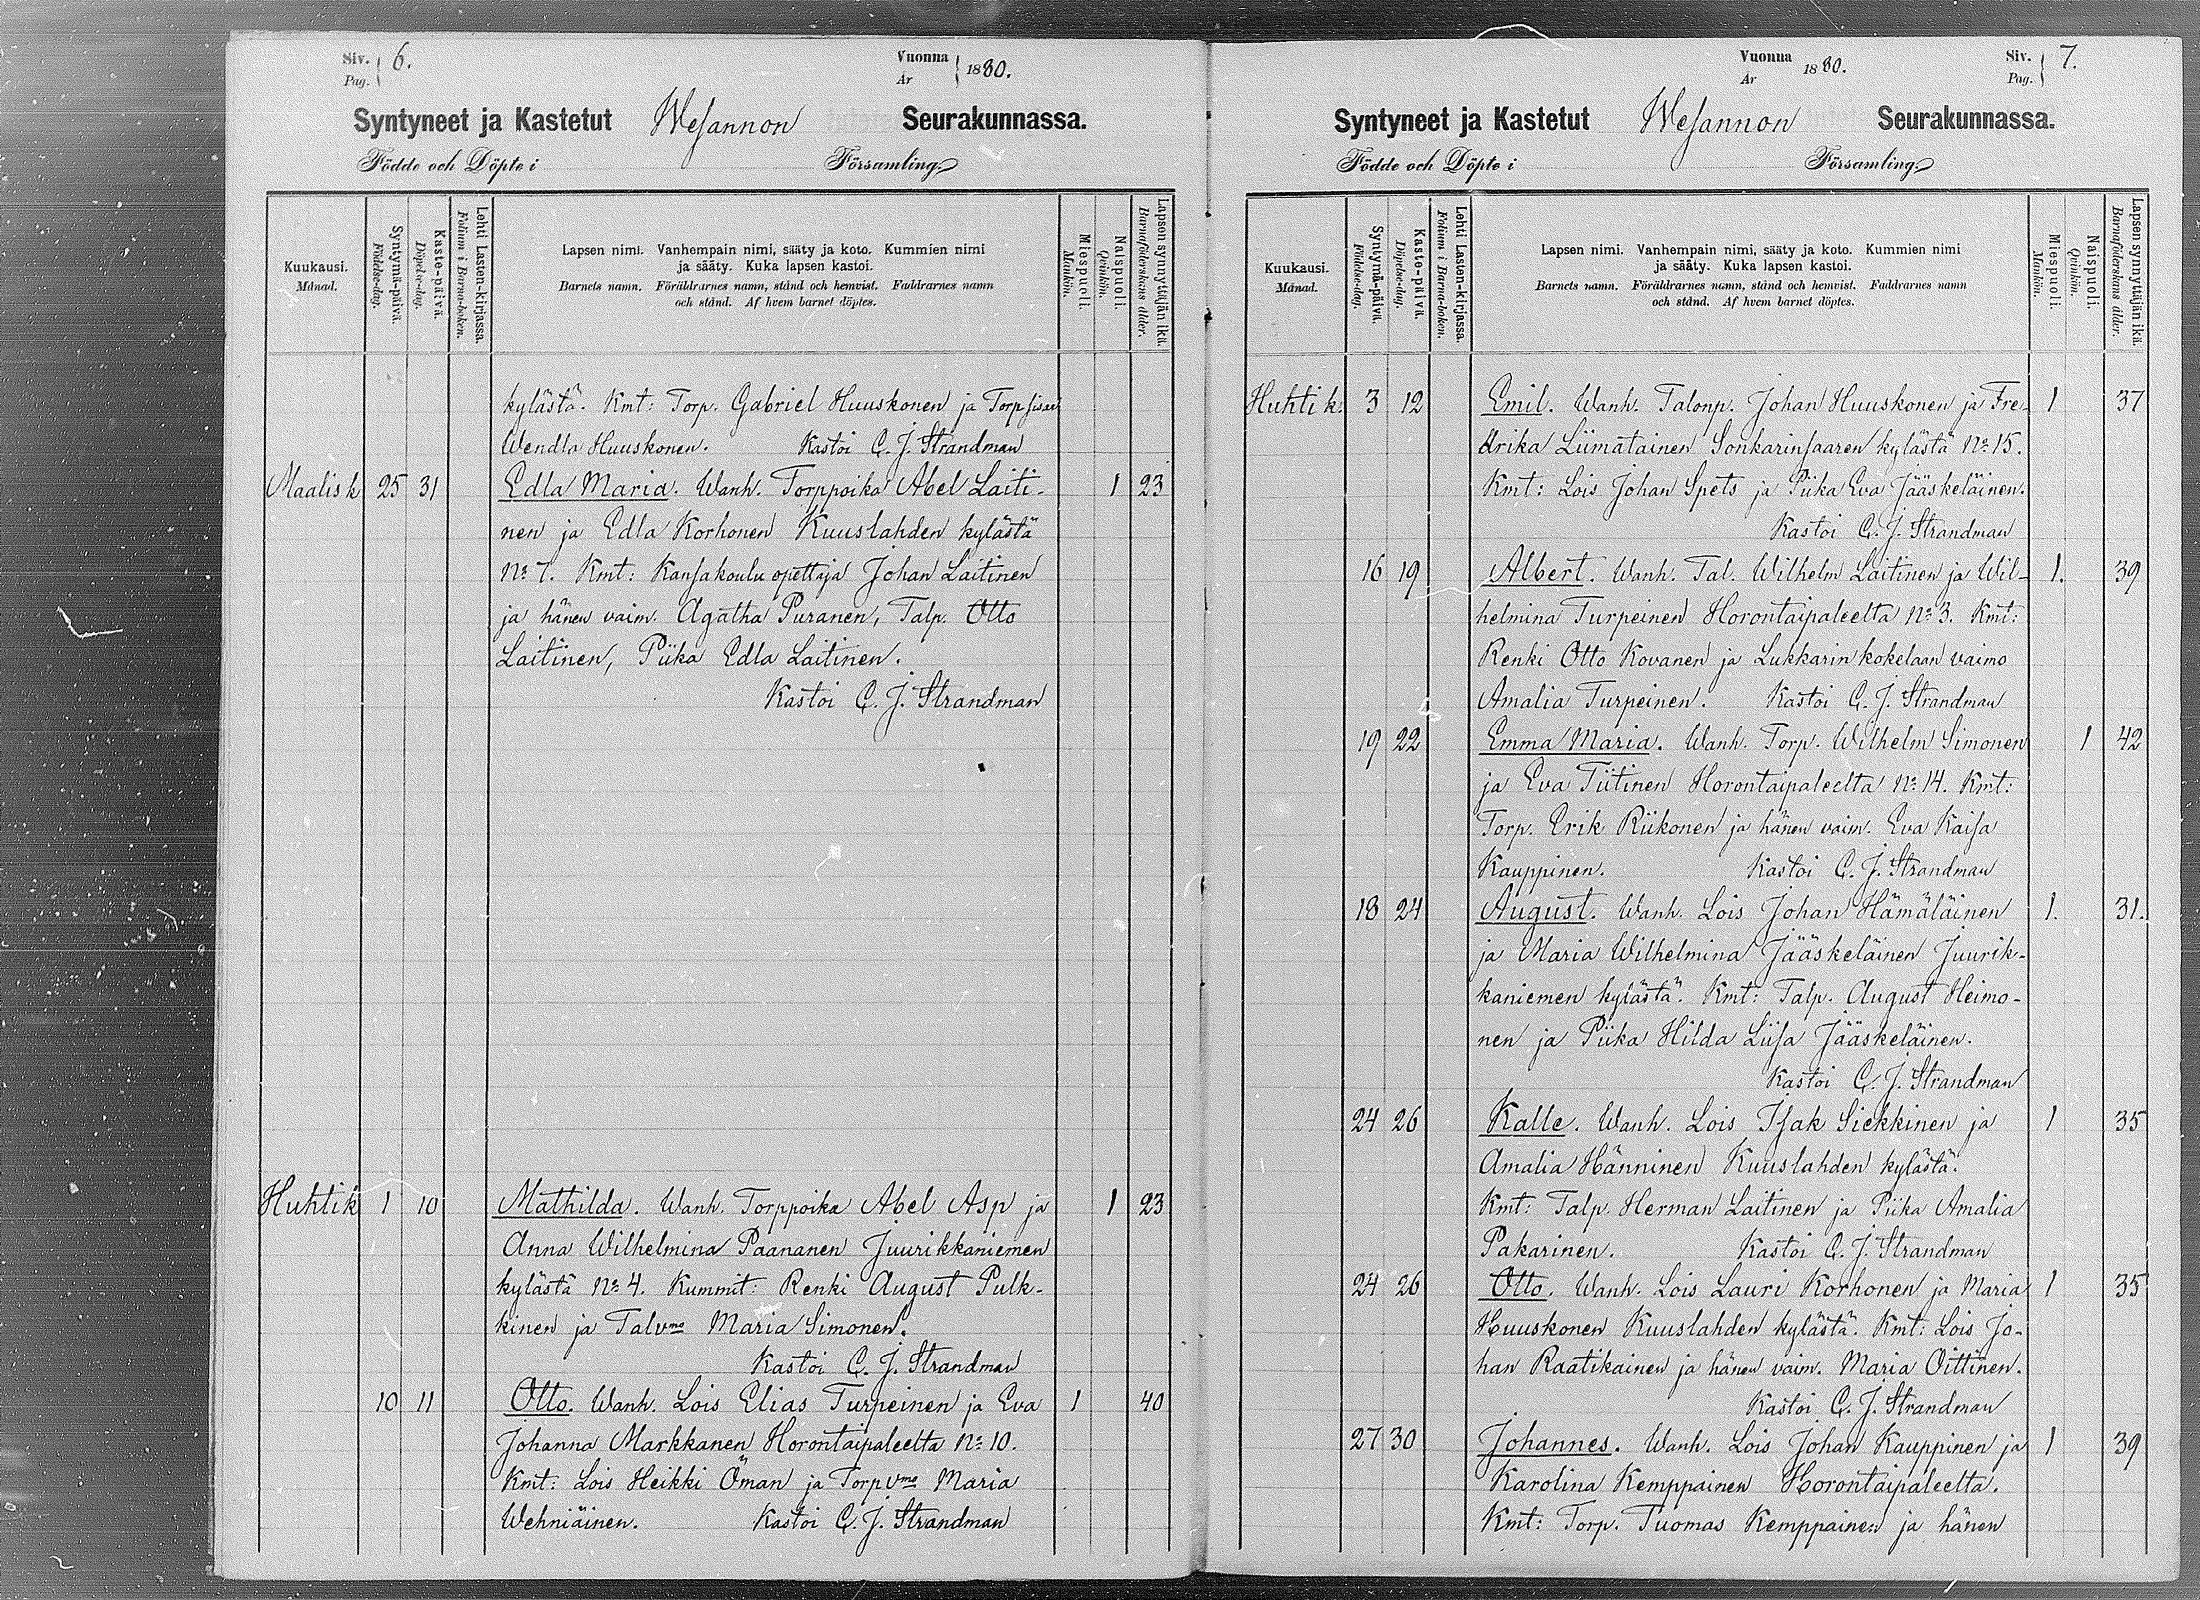 Siv. 6.
Pag.
Vuonna 1880.
År
Syntyneet ja Kastetut Wesannon Seurakunnassa.
Födde och Döpte i Församling.
Kuukausi.
Månad.
Syntymä-päivä.
Födelse-dag.
Kaste-päivä.
Döpelse-dag.
Lehti Lasten-kirjassa.
Folium i Barna-boken.
Lapsen nimi. Vanhempain nimi, sääty ja koto. Kummien nimi
ja sääty. Kuka lapsen kastoi.
Barnets namn. Föräldrarnes namn, stånd och hemvist. Faddrarnes namn
och stånd. Af hvem barnet döptes.
Miespuoli.
Mankön.
Naispuoli.
Qvinkön.
Lapsen synnyttäjän ikä.
Barnaföderskans ålder.
kylästä. Kmt: Torp. Gabriel Huuskonen ja Torp sisar
Wendla Huuskonen. Kastoi C. J. Strandman
Maalisk 25 31 Edla Maria. Wanh. Torppoika Abel Laiti- 1 23
nen ja Edla Korhonen Kuuslahden kylästä
No 7. Kmt: Kansakoulu opettaja Johan Laitinen
ja hänen vaim. Agatha Puranen, Talp. Otto
Laitinen, Piika Edla Laitinen.
Kastoi C. J. Strandman
Huhtik 1 10 Mathilda. Wanh. Torppoika Abel Asp ja 1 23
Anna Wilhelmina Paananen Juurikkaniemen
kylästä No 4. Kummit: Renki August Pulk-
kinen ja Talvmo Maria Simonen.
Kastoi C. J. Strandman
10 11 Otto. Wanh. Lois Elias Turpeinen ja Eva 1 40
Johanna Markkanen Horontaipaleelta No 10.
Kmt: Lois Heikki Öman ja Torpvmo Maria
Wehniäinen. Kastoi C. J. Strandman
Vuonna 1880.
År
Siv. 7.
Pag.
Syntyneet ja Kastetut Wesannon Seurakunnassa.
Födde och Döpte i Församling.
Kuukausi.
Månad.
Syntymä-päivä.
Födelse-dag.
Kaste-päivä.
Döpelse-dag.
Lehti Lasten-kirjassa.
Folium i Barna-boken.
Lapsen nimi. Vanhempain nimi, sääty ja koto. Kummien nimi
ja sääty. Kuka lapsen kastoi.
Barnets namn. Föräldrarnes namn, stånd och hemvist. Faddrarnes namn
och stånd. Af hvem barnet döptes.
Miespuoli.
Mankön.
Naispuoli.
Qvinkön.
Lapsen synnyttäjän ikä.
Barnaföderskans ålder.
Huhtik. 3 12 Emil. Wanh. Talonp. Johan Huuskonen ja Fre- 1 37
drika Liimatainen Sonkarinsaaren kylästä No 15.
Kmt: Lois Johan Spets ja Piika Eva Jääskeläinen.
Kastoi C. J. Strandman
16 19 Albert. Wanh. Tal. Wilhelm Laitinen ja Wil- 1. 39
helmina Turpeinen Horontaipaleelta No 3. Kmt:
Renki Otto Kovanen ja Lukkarin kokelaan vaimo
Amalia Turpeinen. Kastoi C. J. Strandman
19 22 Emma Maria. Wanh. Torp. Wilhelm Simonen 1 42
ja Eva Tiitinen Horontaipaleelta No 14. Kmt:
Torp. Erik Riikonen ja hänen vaim. Eva Kaisa
Kauppinen. Kastoi C. J. Strandman
18 24 August. Wanh. Lois Johan Hämäläinen 1. 31.
ja Maria Wilhelmina Jääskeläinen Juurik-
kaniemen kylästä. Kmt: Talp. August Heimo-
nen ja Piika Hilda Liisa Jääskeläinen.
Kastoi C. J. Strandman
24 26 Kalle. Wanh. Lois Isak Siekkinen ja 1 35
Amalia Hänninen Kuuslahden kylästä.
Kmt: Talp. Herman Laitinen ja Piika Amalia
Pakarinen. Kastoi C. J. Strandman
24 26 Otto. Wanh. Lois Lauri Korhonen ja Maria 1 35
Huuskonen Kuuslahden kylästä. Kmt: Lois Jo-
han Raatikainen ja hänen vaim. Maria Oittinen.
Kastoi C. J. Strandman
27 30 Johannes. Wanh. Lois Johan Kauppinen ja 1 39
Karolina Kemppainen Horontaipaleelta.
Kmt: Torp. Tuomas Kemppainen ja hänen